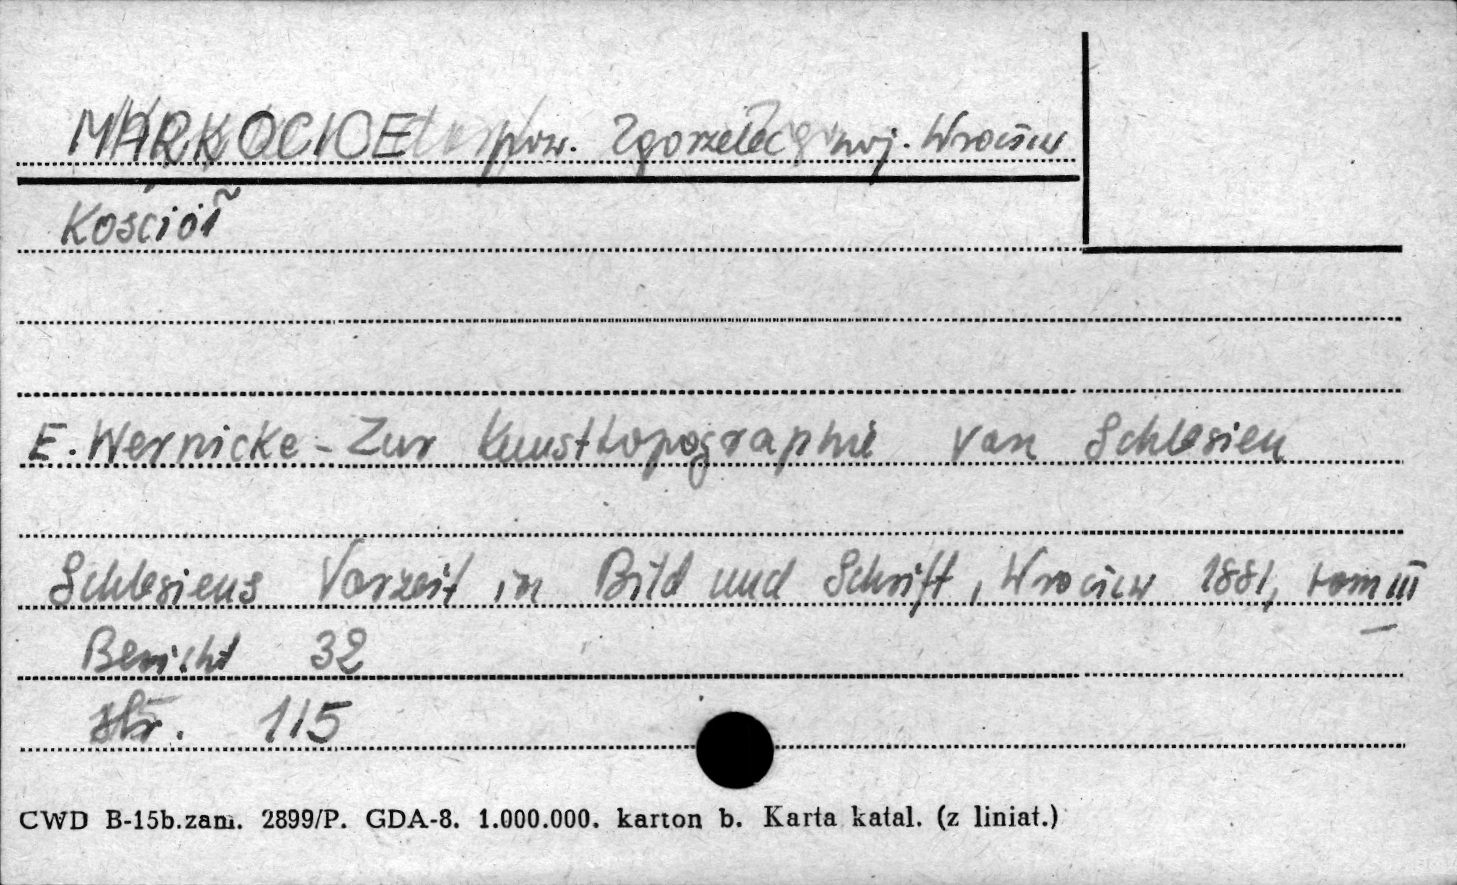 MARKOCICE pow. Zgorzelec woj. Wrocław
Kościół
E. Wernicke - Zur Kunsttopographie von Schlesien
Schlesiens Vorzeit in Bild und Schrift, Wrocław 1881, tom III
Bericht 32
str. 115
CWD B-15b.zam. 2899/P. GDA-8. 1.000.000. karton b. Karta katal. (z liniat.)